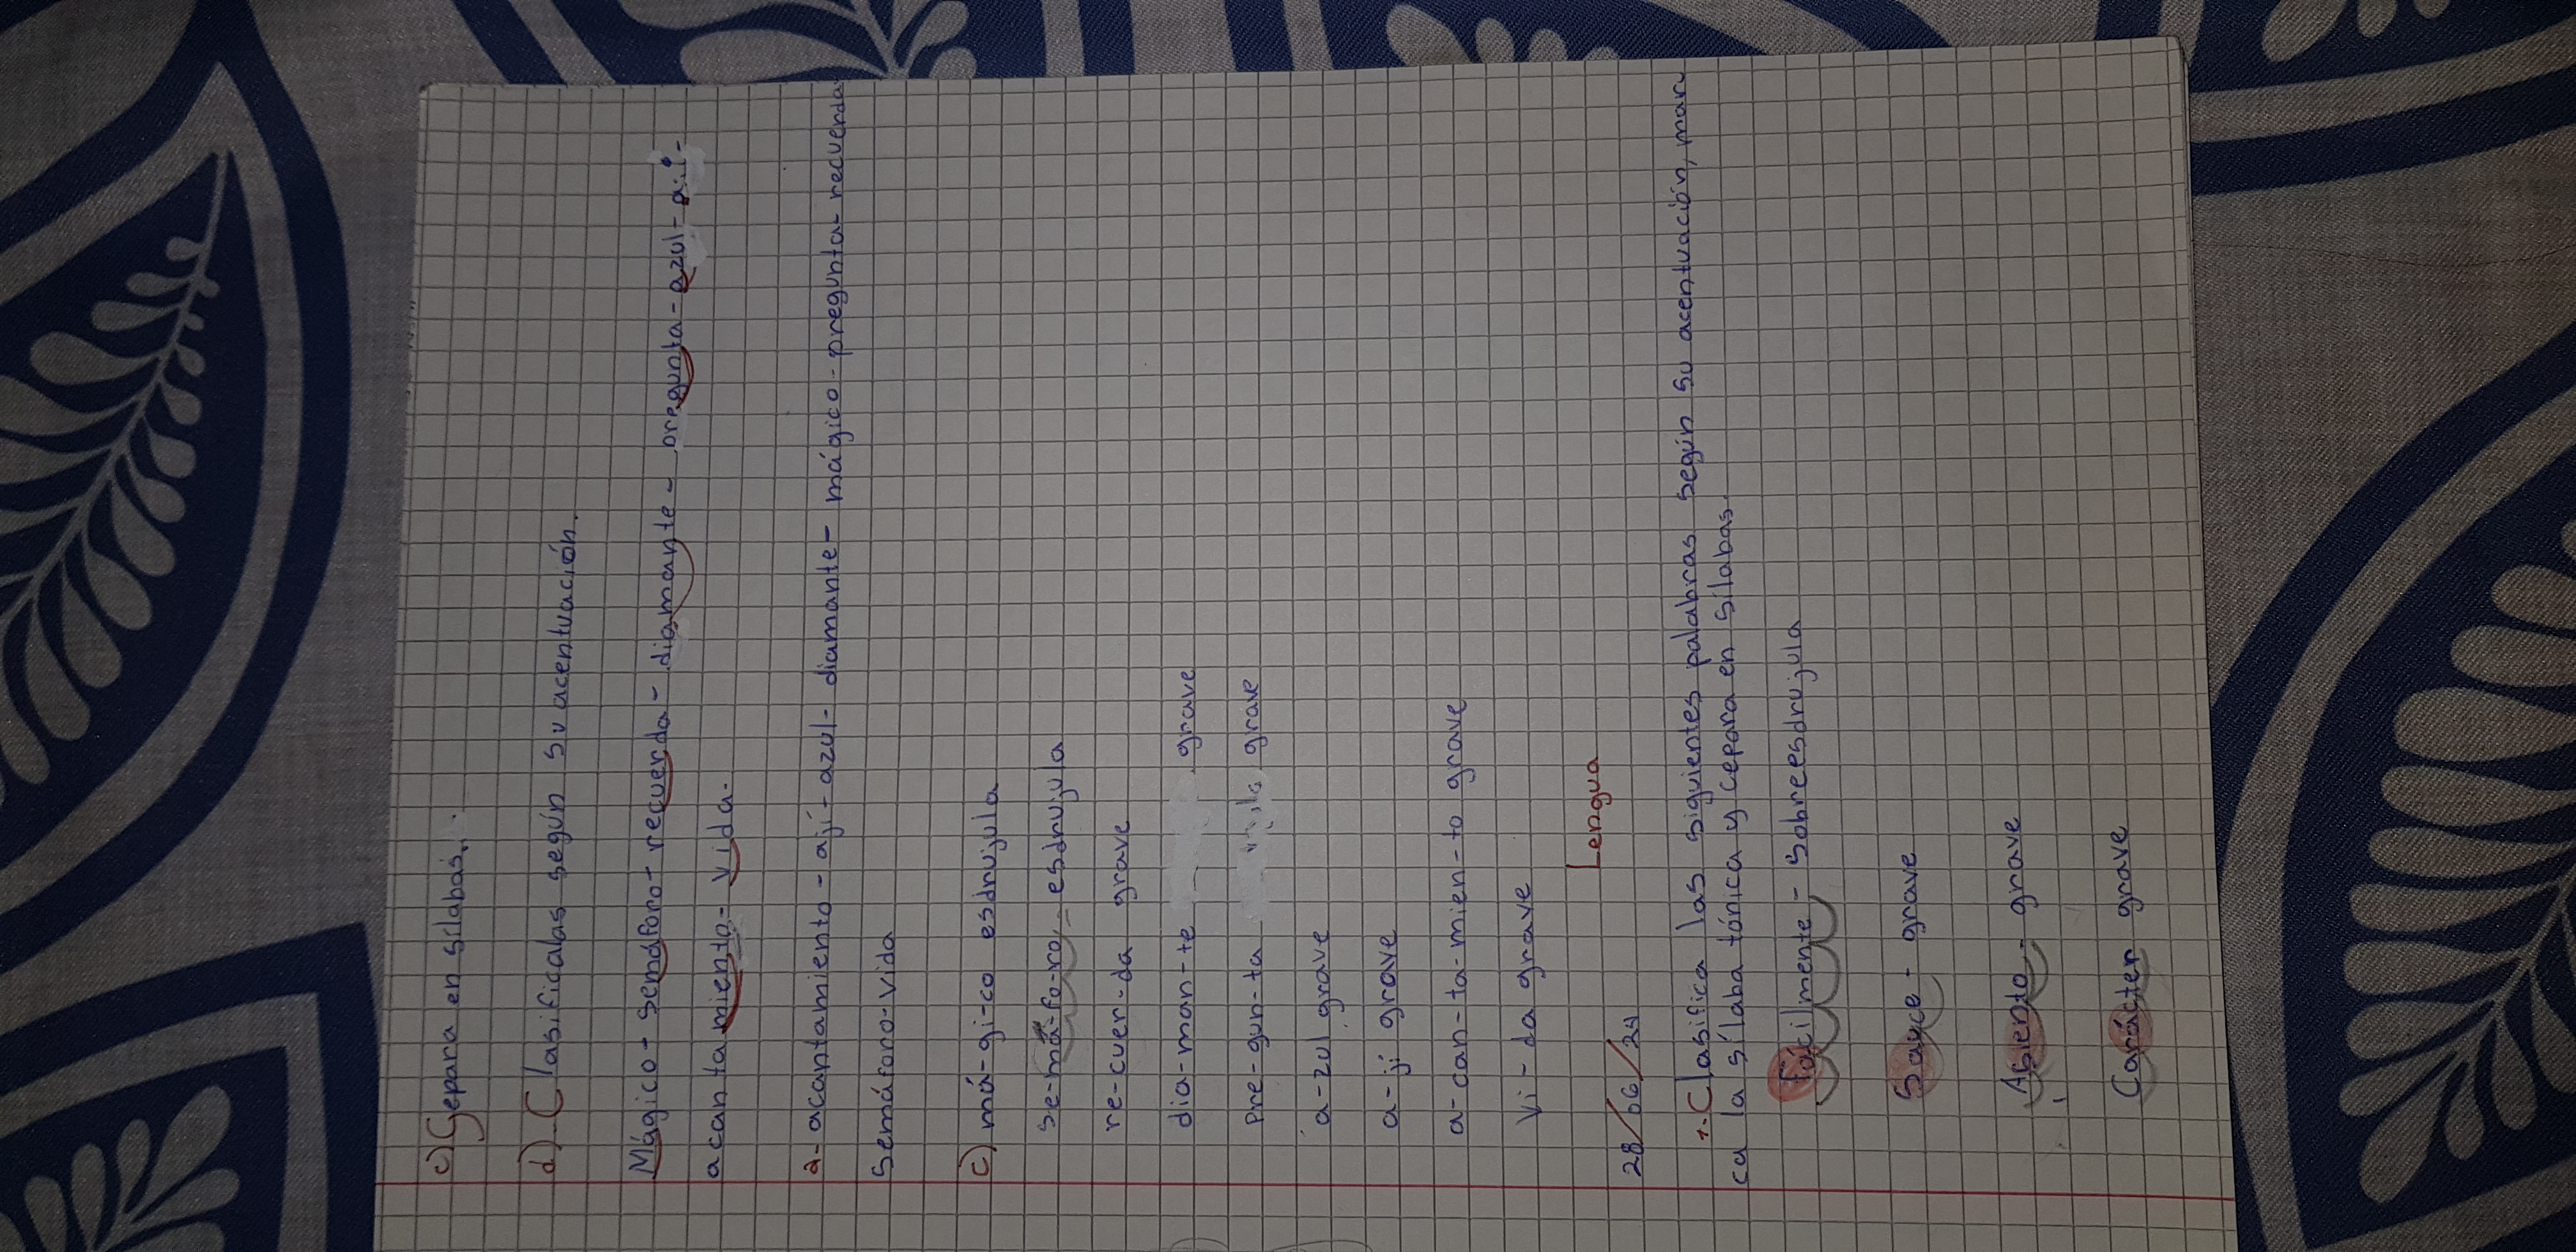 c) Separa en silabas.
d)-Clasificalas según su acentuación.
Mágico - semáforo - recuerda - diamante - pregunta - azul - ají -
acantamiento - vida.
a- acantamiento - ají - azul - diamante - mágico - pregunta - recuerda
Semáforo - vida
c) má-gi-co esdrujula
se-má-fo-ro - esdrujula
re-cuer-da grave
dia-man-te grave
Pre-gun-ta grave
a-zul grave
a-jí grave
a-can-ta-mien-to grave
Vi-da grave
Lengua
28/06/24
1.Clasifica las siguientes palabras según su acentuación, mar
ca la sílaba tónica y cepara en sílabas.
Fácilmente - Sobreesdrujula
Sauce - grave
Asiento - grave
Carácter grave